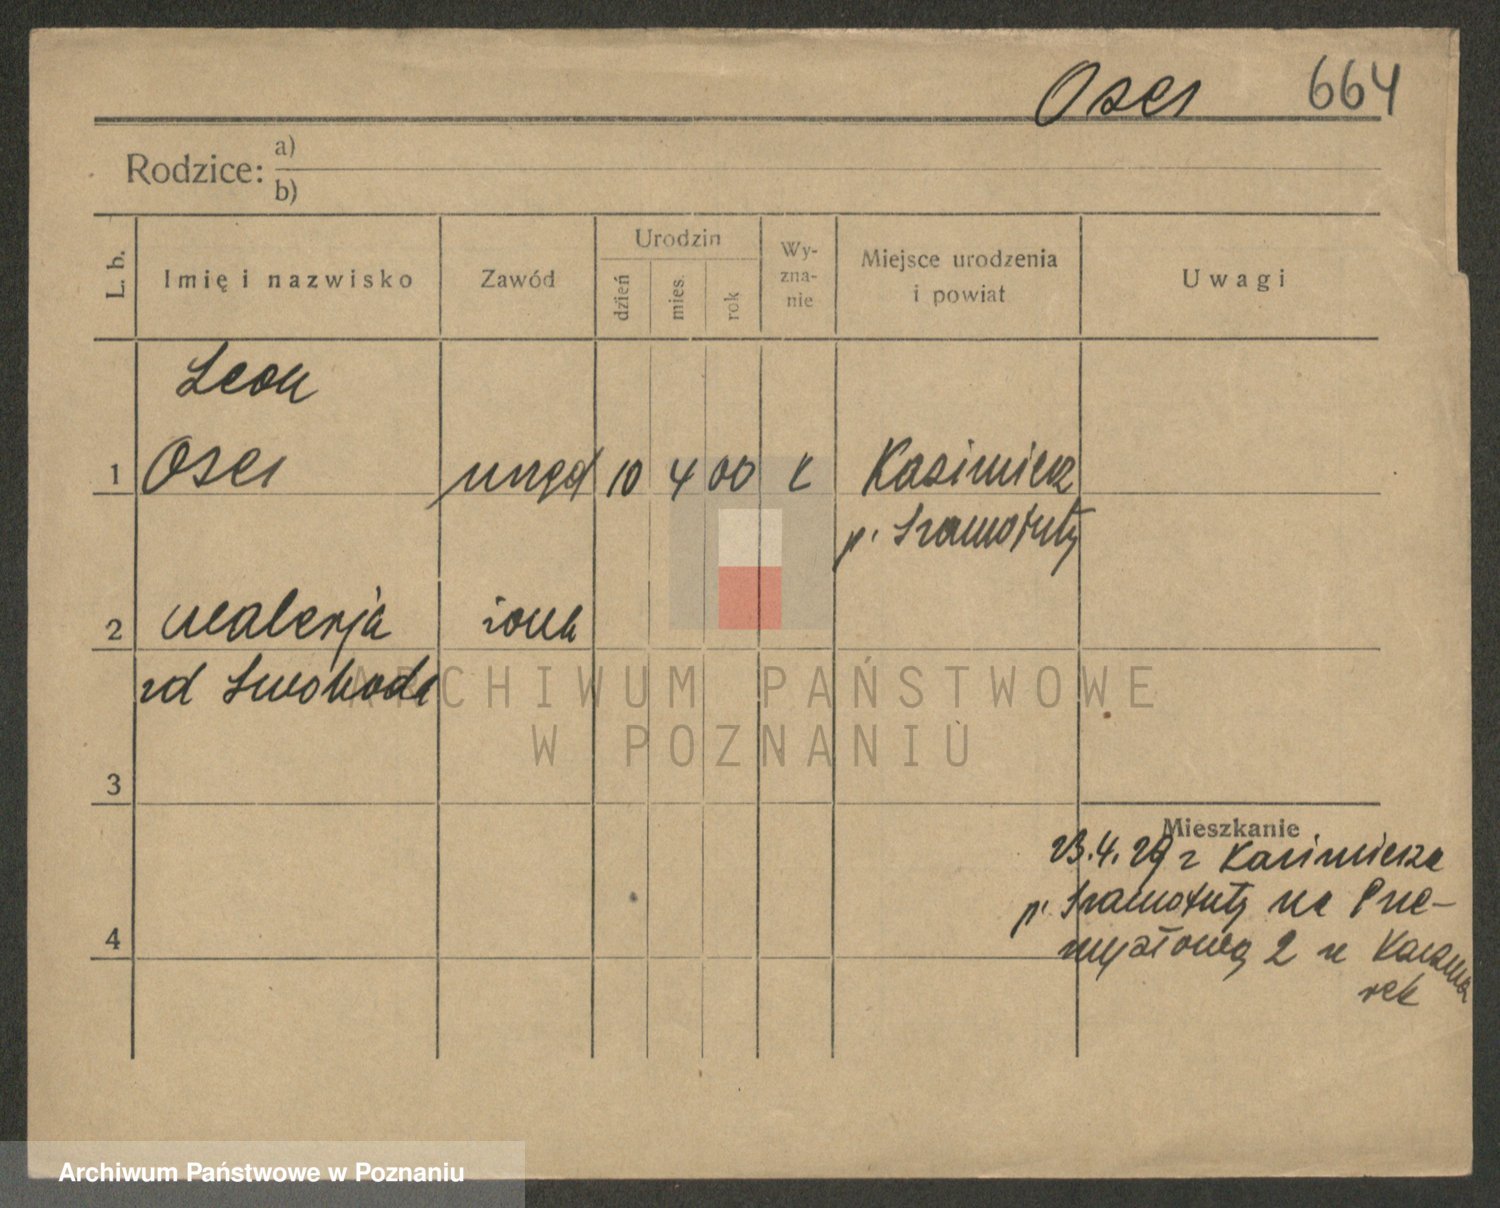 Oses 664
Rodzice: a)
b)
L. b.
Imię i nazwisko
Zawód
Urodzin
dzień
mies.
rok
Wy-
zna-
nie
Miejsce urodzenia
i powiat
Uwagi
Leon
1 Oses urzęd 10 4 00 k Kasimierz
p. Szamotuły
2 Walerja żona
zd Swoboda
3
4
Mieszkanie
23.4.29 z Kasimierza
p. Szamotuły na Prze-
mysłową 2 u Kaczma
rek
ARCHIWUM PAŃSTWOWE
W POZNANIU
Archiwum Państwowe w Poznaniu